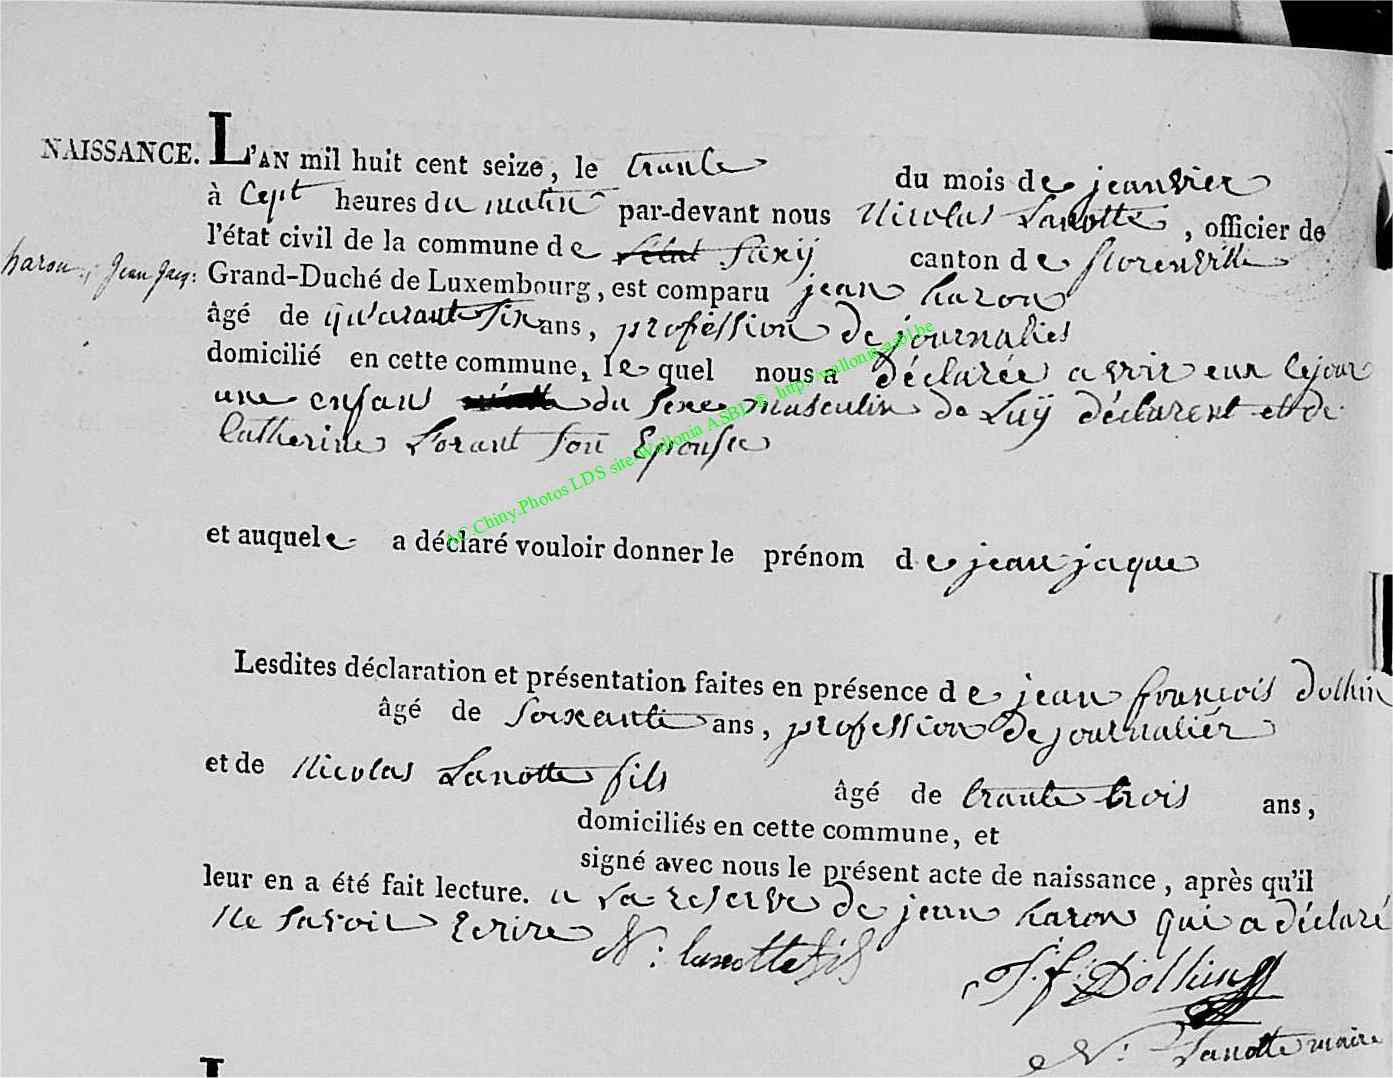 NAISSANCE. L'AN mil huit cent seize, le trante du mois de jeanvier
à Cept heures du matin par-devant nous Nicolas Lanotte, officier de
l'état civil de la commune de canton de florenville
haron, Jean Jacq: Grand-Duché de Luxembourg, est comparu jean haron
âgé de qu'arante six ans, profession de journalies
domicilié en cette commune, le quel nous a déclarée avoir eux lejour
une enfans du sexe masculin de Luÿ déclarent et de
Catherine Lorant son Epouse
AC Chiny.Photos LDS site Wallonia ASBL
et auquele a déclaré vouloir donner le prénom de jean jaque
Lesdites déclaration et présentation faites en présence de jean francois dolhin
âgé de soixente ans, profession de journaliér
et de Nicolas Lanotte fils âgé de trante trois ans,
domiciliés en cette commune, et
signé avec nous le présent acte de naissance, après qu'il
leur en a été fait lecture. a La reserve de jean haron qui a déclaré
Ne savoir Ecrire N: lanotte fils
J. f. Dolhin
N: Lanotte maire